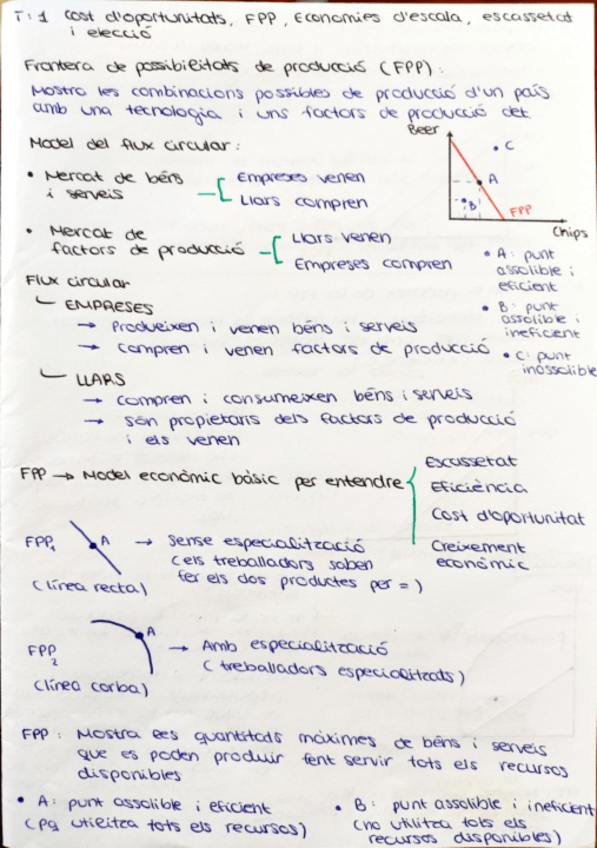 T: 1 Cost d'oportunitats, FPP, Economies d'escala, escassetat
i elecció
Frontera de possibilitats de producció (FPP):
Mostra les combinacions possibles de producció d'un país
amb una tecnologia i uns factors de producció det
Model del flux circular:
• Mercat de béns
i serveis
Empreses venen
Llars compren
• Mercat de
factors de producció
Llars venen
Empreses compren
Beer
C
A
B
FPP
Chips
• A: punt
assolible i
eficient
• B: punt
assolible i
ineficient
• C: punt
inassolible
Flux circular
EMPRESES
→ Produeixen i venen béns i serveis
→ compren i venen factors de producció
LLARS
→ compren i consumeixen béns i serveis
→ són propietaris dels factors de producció
i els venen
FPP → Model econòmic bàsic per entendre
Escassetat
Eficiència
Cost d'oportunitat
Creixement
econòmic
FPP1
A
→ Sense especialització
(els treballadors saben
fer els dos productes per =)
(línea recta)
FPP2
A
→ Amb especialització
(treballadors especialitzats)
(línea corba)
FPP: Mostra les quantitats màximes de béns i serveis
que es poden produir fent servir tots els recursos
disponibles
• A: punt assolible i eficient
(pq utilitza tots els recursos)
• B: punt assolible i ineficient
(no utilitza tots els
recursos disponibles)